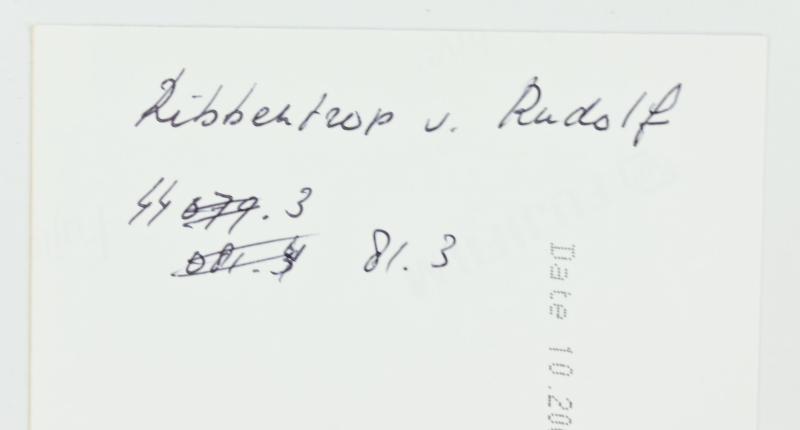 Ribbentrop v. Rudolf
SS 079.3
081.3 81.3
Date 10.20